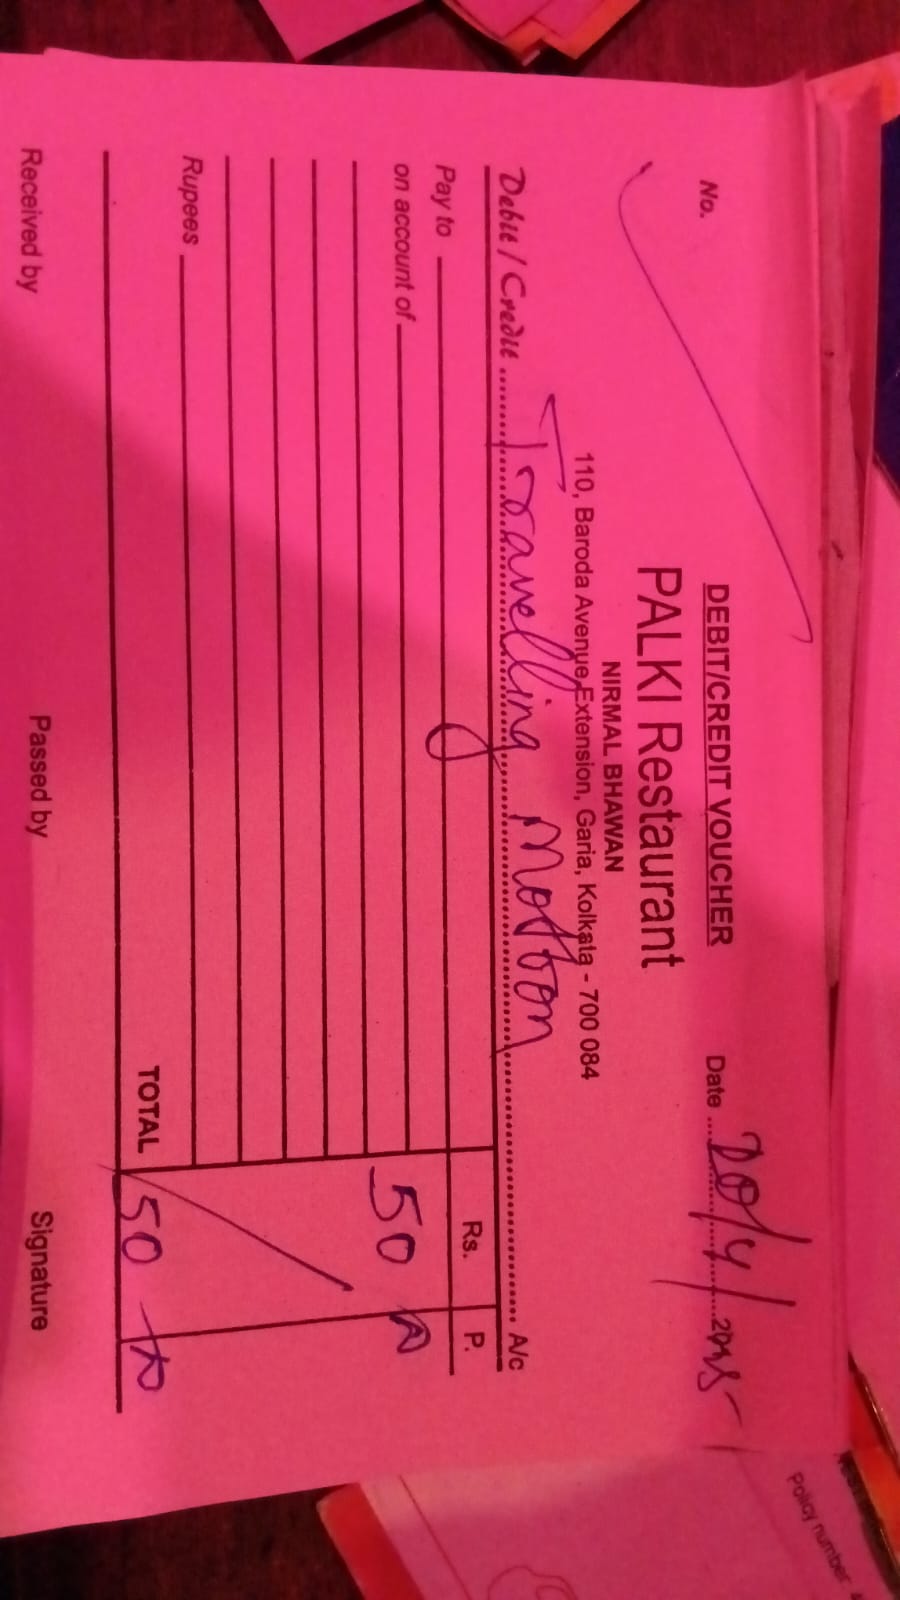 DEBIT/CREDIT VOUCHER
No. Date 20/4/2015
PALKI Restaurant
NIRMAL BHAWAN
110, Baroda Avenue Extension, Garia, Kolkata - 700 084
Debit / Credit Travelling Motton A/c
Pay to Rs. P.
on account of 50
Rupees
TOTAL 50
Received by Passed by Signature
Policy number